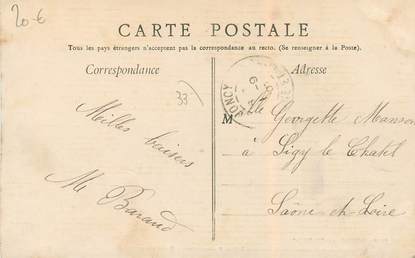 20-6
CARTE POSTALE
Tous les pays étrangers n'acceptent pas la correspondance au recto. (Se renseigner à la Poste).
Correspondance
Adresse
33
Meilles baisers
M Baraud
Mlle Georgette Manson
à Sigy le Chatel
Saône et Loire